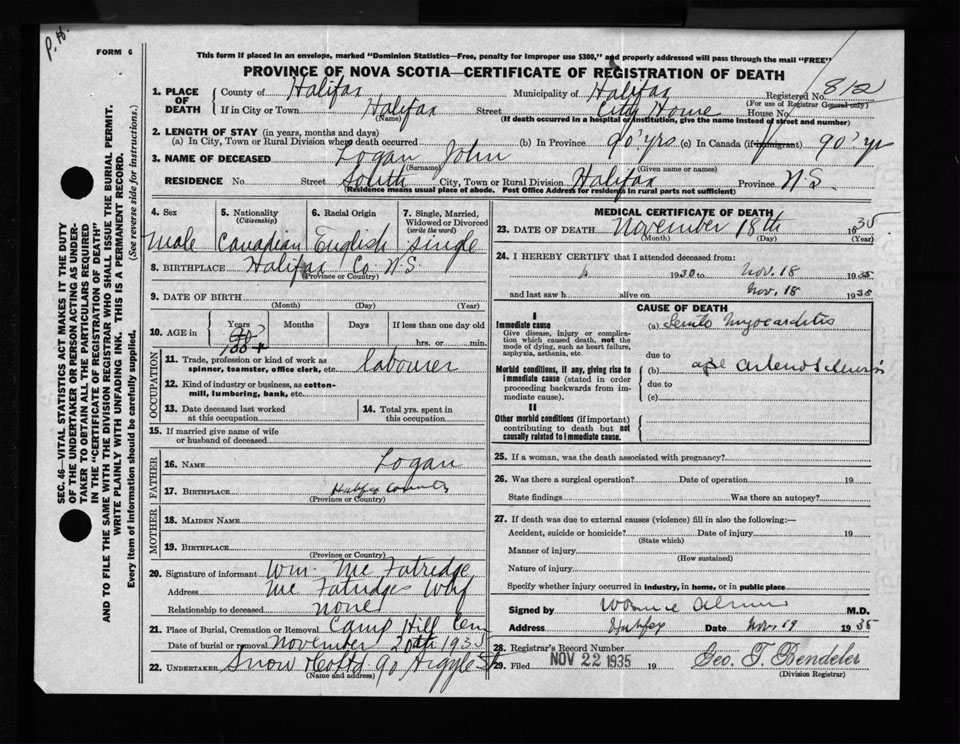 P. H.
FORM 6
This form if placed in an envelope, marked "Dominion Statistics—Free, penalty for improper use $300," and properly addressed will pass through the mail "FREE"
PROVINCE OF NOVA SCOTIA—CERTIFICATE OF REGISTRATION OF DEATH
1. PLACE OF DEATH County of Halifax Municipality of Halifax Registered No. 812
(For use of Registrar General only)
If in City or Town Halifax Street City Home House No.
(Name) (If death occurred in a hospital or institution, give the name instead of street and number)
2. LENGTH OF STAY (in years, months and days)
(a) In City, Town or Rural Division where death occurred (b) In Province 90 yrs (c) In Canada (if immigrant) 90 yr
3. NAME OF DECEASED Logan John
(Surname) (Given name or names)
RESIDENCE No. Street South City, Town or Rural Division Halifax Province N.S.
(Residence means usual place of abode. Post Office Address for residents in rural parts not sufficient)
4. Sex 5. Nationality (Citizenship) 6. Racial Origin 7. Single, Married, Widowed or Divorced (write the word)
Male Canadian English Single
8. BIRTHPLACE Halifax Co N.S.
(Province or Country)
9. DATE OF BIRTH
(Month) (Day) (Year)
10. AGE in Years Months Days If less than one day old
90
hrs. or min.
OCCUPATION
11. Trade, profession or kind of work as spinner, teamster, office clerk, etc. labourer
12. Kind of industry or business, as cotton-mill, lumbering, bank, etc.
13. Date deceased last worked at this occupation 14. Total yrs. spent in this occupation
15. If married give name of wife or husband of deceased
FATHER
16. NAME Logan
17. BIRTHPLACE Halifax County
(Province or Country)
MOTHER
18. MAIDEN NAME
19. BIRTHPLACE
(Province or Country)
20. Signature of informant Wm. Mc Fatridge
Address Mc Fatridge
Relationship to deceased none
21. Place of Burial, Cremation or Removal Camp Hill Cem
Date of burial or removal November 20th 1935
22. UNDERTAKER Snow 90 Argyle St
(Name and address)
MEDICAL CERTIFICATE OF DEATH
23. DATE OF DEATH November 18th 1935
(Month) (Day) (Year)
24. I HEREBY CERTIFY that I attended deceased from:
1930 to Nov. 18 1935
and last saw h alive on Nov. 18 1935
CAUSE OF DEATH
I
Immediate cause
Give disease, injury or complication which caused death, not the mode of dying, such as heart failure, asphyxia, asthenia, etc.
(a) Senile myocarditis
due to
Morbid conditions, if any, giving rise to immediate cause (stated in order proceeding backwards from immediate cause).
(b) age
due to
(c)
II
Other morbid conditions (if important) contributing to death but not causally related to immediate cause.
25. If a woman, was the death associated with pregnancy?
26. Was there a surgical operation? Date of operation 19
State findings Was there an autopsy?
27. If death was due to external causes (violence) fill in also the following:—
Accident, suicide or homicide? Date of injury 19
(State which)
Manner of injury
(How sustained)
Nature of injury
Specify whether injury occurred in industry, in home, or in public place
Signed by M.D.
Address Halifax Date Nov. 19 1935
28. Registrar's Record Number
29. Filed NOV 22 1935 19 Geo. T. Bendeler
(Division Registrar)
SEC. 46—VITAL STATISTICS ACT MAKES IT THE DUTY
OF THE UNDERTAKER OR PERSON ACTING AS UNDERTAKER
TO OBTAIN ALL THE PARTICULARS REQUIRED
IN THE "CERTIFICATE OF REGISTRATION OF DEATH"
AND TO FILE THE SAME WITH THE DIVISION REGISTRAR WHO SHALL ISSUE THE BURIAL PERMIT.
WRITE PLAINLY WITH UNFADING INK. THIS IS A PERMANENT RECORD.
Every item of information should be carefully supplied. (See reverse side for instructions.)